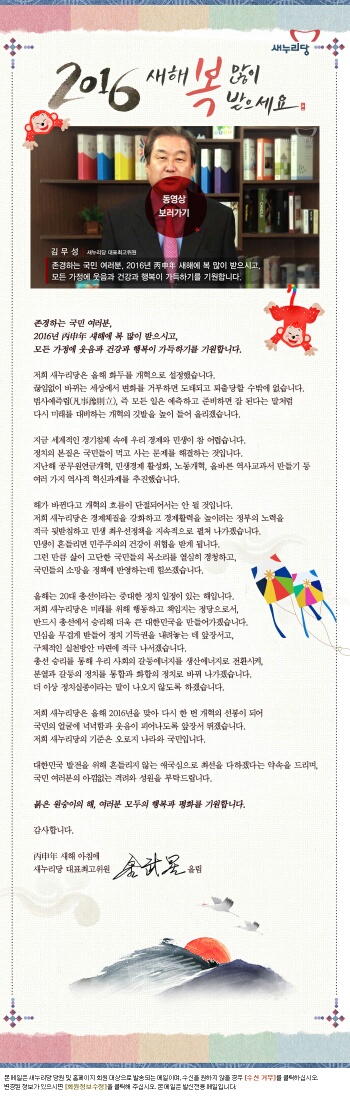 새누리당
2016 새해 복 많이 받으세요
동영상
보러가기
김무성 새누리당 대표최고위원
존경하는 국민 여러분, 2016년 丙申年 새해에 복 많이 받으시고,
모든 가정에 웃음과 건강과 행복이 가득하기를 기원합니다.
존경하는 국민 여러분,
2016년 丙申年 새해에 복 많이 받으시고,
모든 가정에 웃음과 건강과 행복이 가득하기를 기원합니다.
저희 새누리당은 올해 화두를 개혁으로 설정했습니다.
끊임없이 바뀌는 세상에서 변화를 거부하면 도태되고 퇴출당할 수밖에 없습니다.
범사예즉립(凡事豫則立), 즉 모든 일은 예측하고 준비하면 잘 된다는 말처럼
다시 미래를 대비하는 개혁의 깃발을 높이 들어 올리겠습니다.
지금 세계적인 경기침체 속에 우리 경제와 민생이 참 어렵습니다.
정치의 본질은 국민들이 먹고 사는 문제를 해결하는 것입니다.
지난해 공무원연금개혁, 민생경제 활성화, 노동개혁, 올바른 역사교과서 만들기 등
여러 가지 역사적 혁신과제를 추진했습니다.
해가 바뀐다고 개혁의 흐름이 단절되어서는 안 될 것입니다.
저희 새누리당은 경제체질을 강화하고 경제활력을 높이려는 정부의 노력을
적극 뒷받침하고 민생 최우선정책을 지속적으로 펼쳐 나가겠습니다.
민생이 흔들리면 민주주의의 건강이 위협을 받게 됩니다.
그런 만큼 삶이 고단한 국민들의 목소리를 열심히 경청하고,
국민들의 소망을 정책에 반영하는데 힘쓰겠습니다.
올해는 20대 총선이라는 중대한 정치 일정이 있는 해입니다.
저희 새누리당은 미래를 위해 행동하고 책임지는 정당으로서,
반드시 총선에서 승리해 더욱 큰 대한민국을 만들어가겠습니다.
민심을 무겁게 받들어 정치 기득권을 내려놓는 데 앞장서고,
구체적인 실천방안 마련에 적극 나서겠습니다.
총선 승리를 통해 우리 사회의 갈등에너지를 생산에너지로 전환시켜,
분열과 갈등의 정치를 통합과 화합의 정치로 바꿔 나가겠습니다.
더 이상 정치실종이라는 말이 나오지 않도록 하겠습니다.
저희 새누리당은 올해 2016년을 맞아 다시 한 번 개혁의 선봉이 되어
국민의 얼굴에 넉넉함과 웃음이 피어나도록 앞장서 뛰겠습니다.
저희 새누리당의 기준은 오로지 나라와 국민입니다.
대한민국 발전을 위해 흔들리지 않는 애국심으로 최선을 다하겠다는 약속을 드리며,
국민 여러분의 아낌없는 격려와 성원을 부탁드립니다.
붉은 원숭이의 해, 여러분 모두의 행복과 평화를 기원합니다.
감사합니다.
丙申年 새해 아침에
새누리당 대표최고위원 金武星 올림
본 메일은 새누리당 당원 및 홈페이지 회원 대상으로 발송되는 메일이며, 수신을 원하지 않을 경우 [수신 거부]를 클릭하십시오.
변경된 정보가 있으시면 [회원정보수정]을 클릭해 주십시오. 본 메일은 발신전용 메일입니다.